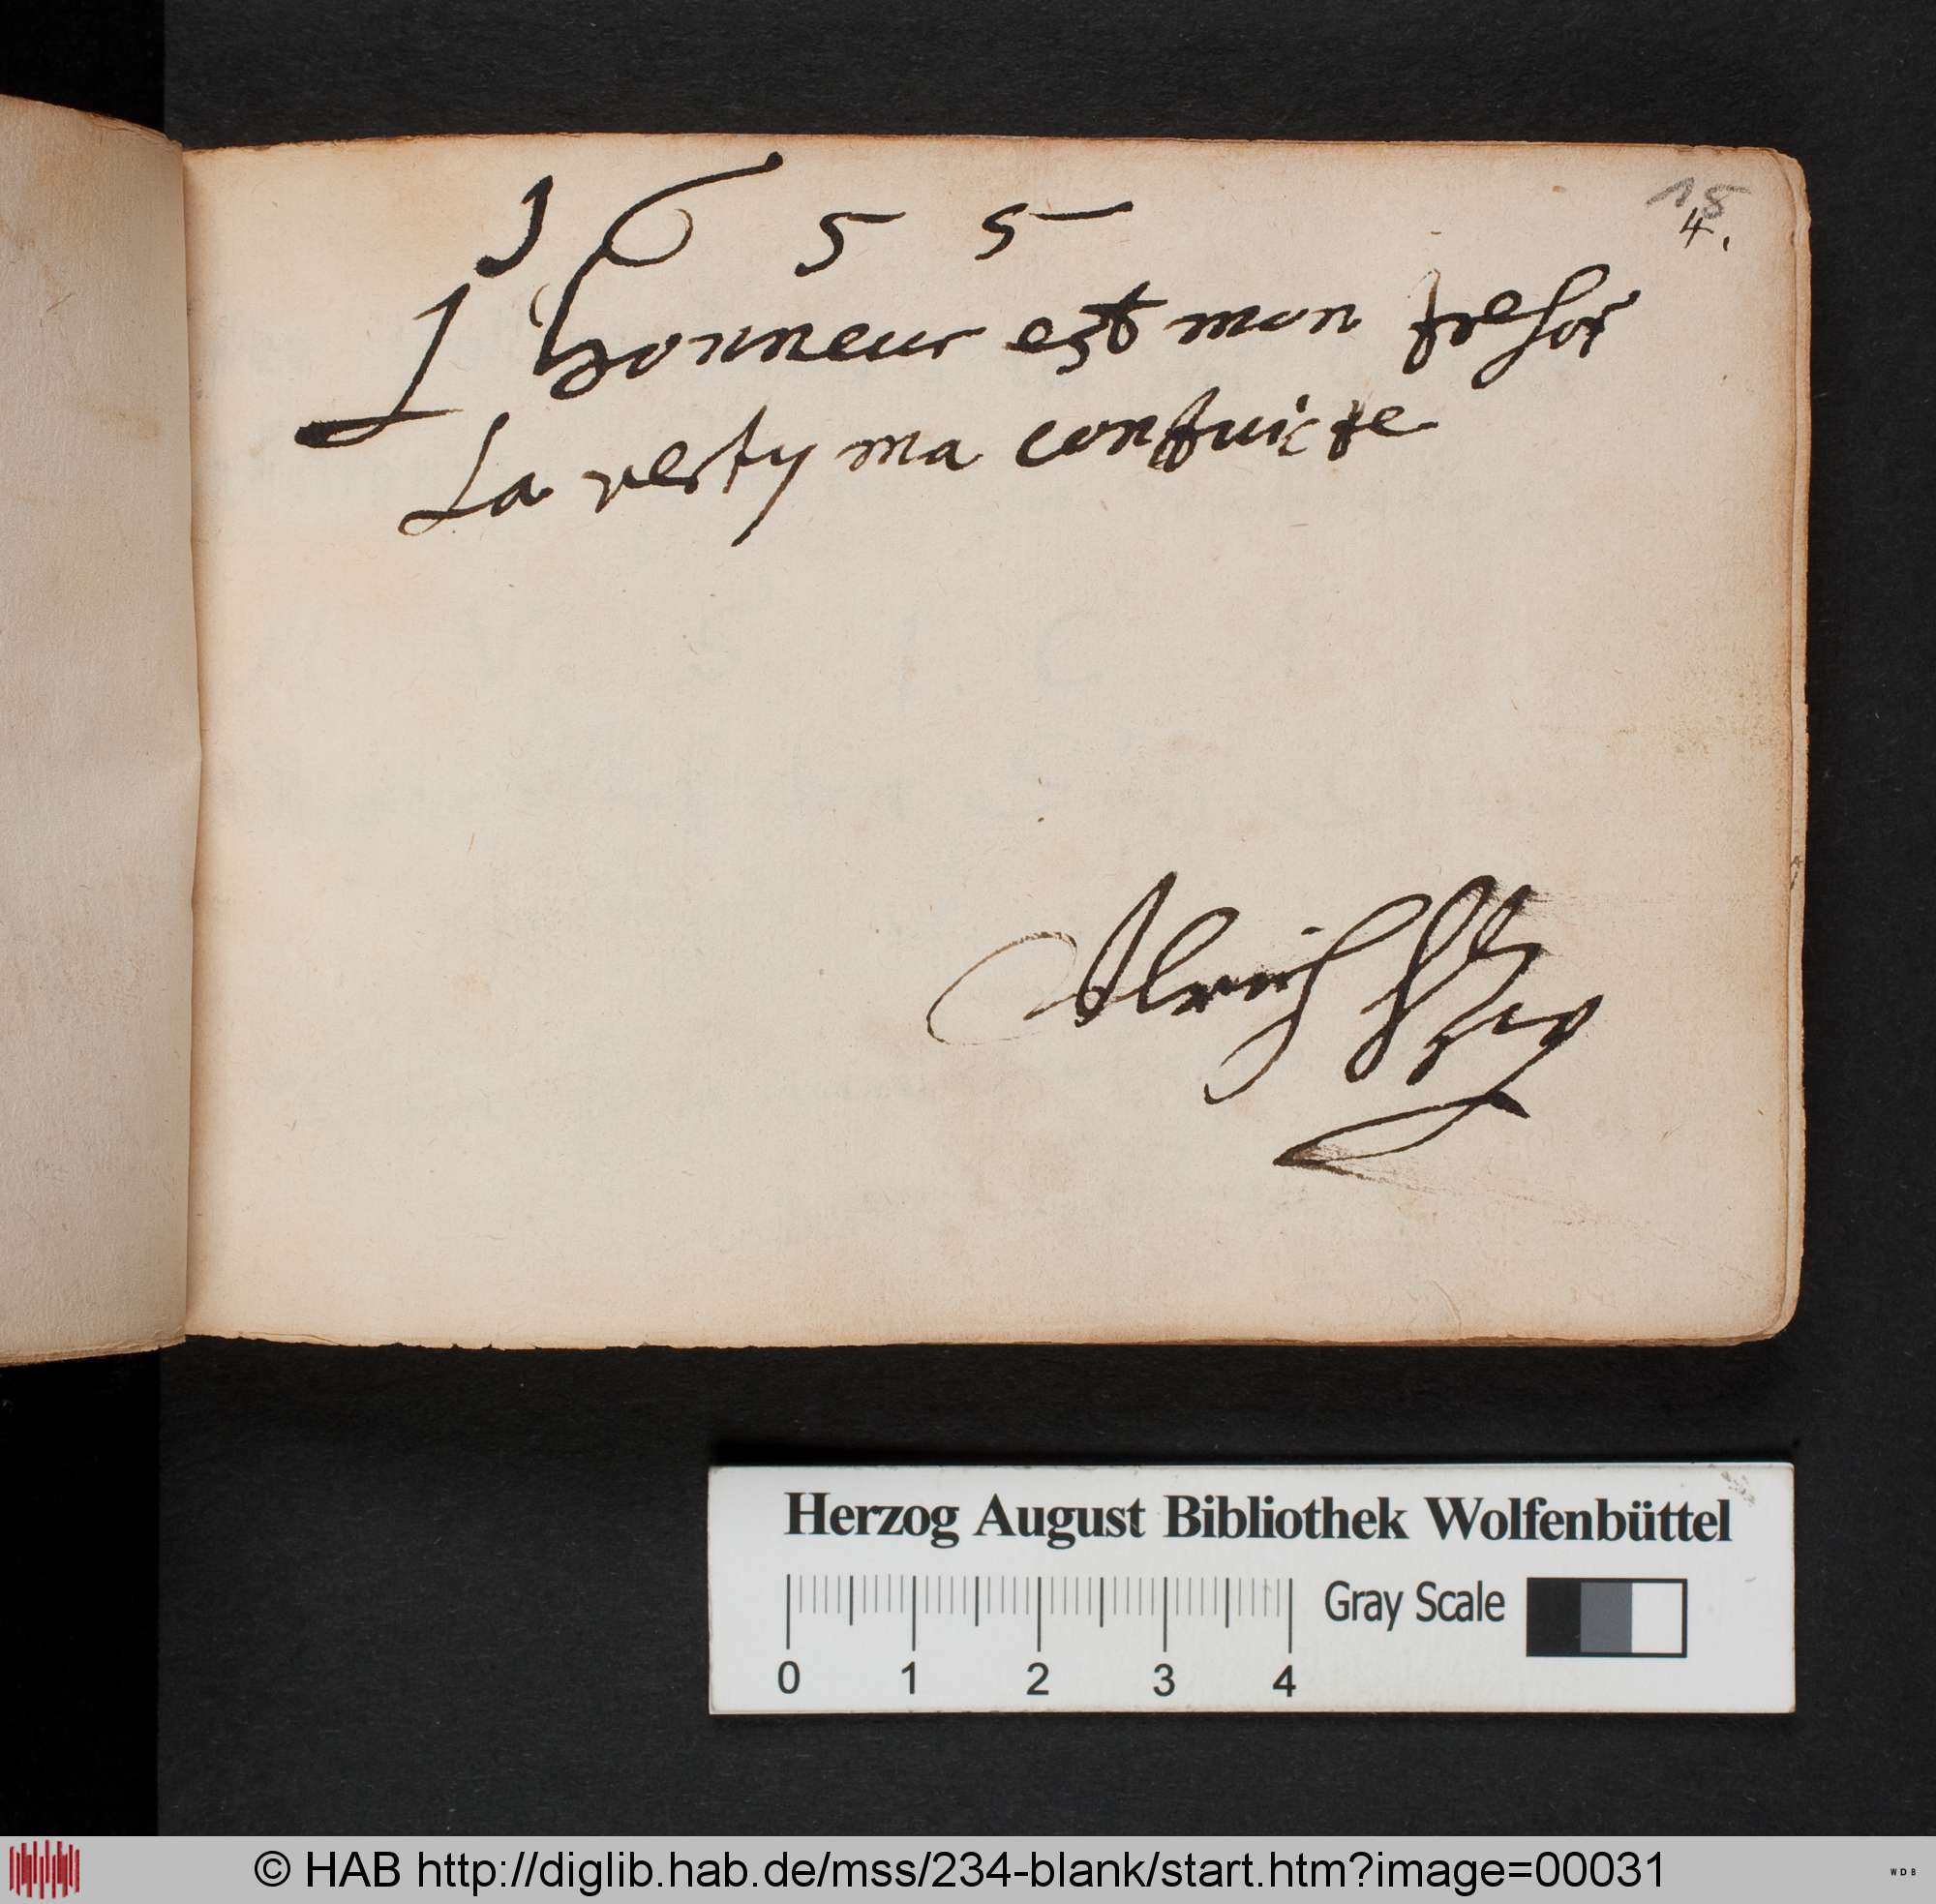 1655
15
4.
L honneur est mon tresor
La verty ma contuicte
Ulrich
Herzog August Bibliothek Wolfenbüttel
Gray Scale
0 1 2 3 4
© HAB http://diglib.hab.de/mss/234-blank/start.htm?image=00031
WDB